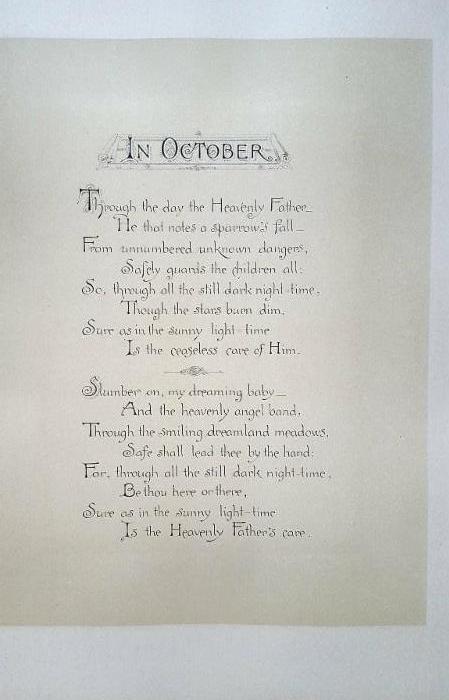 IN OCTOBER
Through the day the Heavenly Father—
He that notes a sparrow's fall—
From unnumbered unknown dangers,
Safely guards the children all:
So, through all the still dark night-time,
Though the stars burn dim,
Sure as in the sunny light-time
Is the ceaseless care of Him.
Slumber on, my dreaming baby—
And the heavenly angel band,
Through the smiling dreamland meadows,
Safe shall lead thee by the hand:
For, through all the still dark night-time,
Be thou here or there,
Sure as in the sunny light-time
Is the Heavenly Father's care.